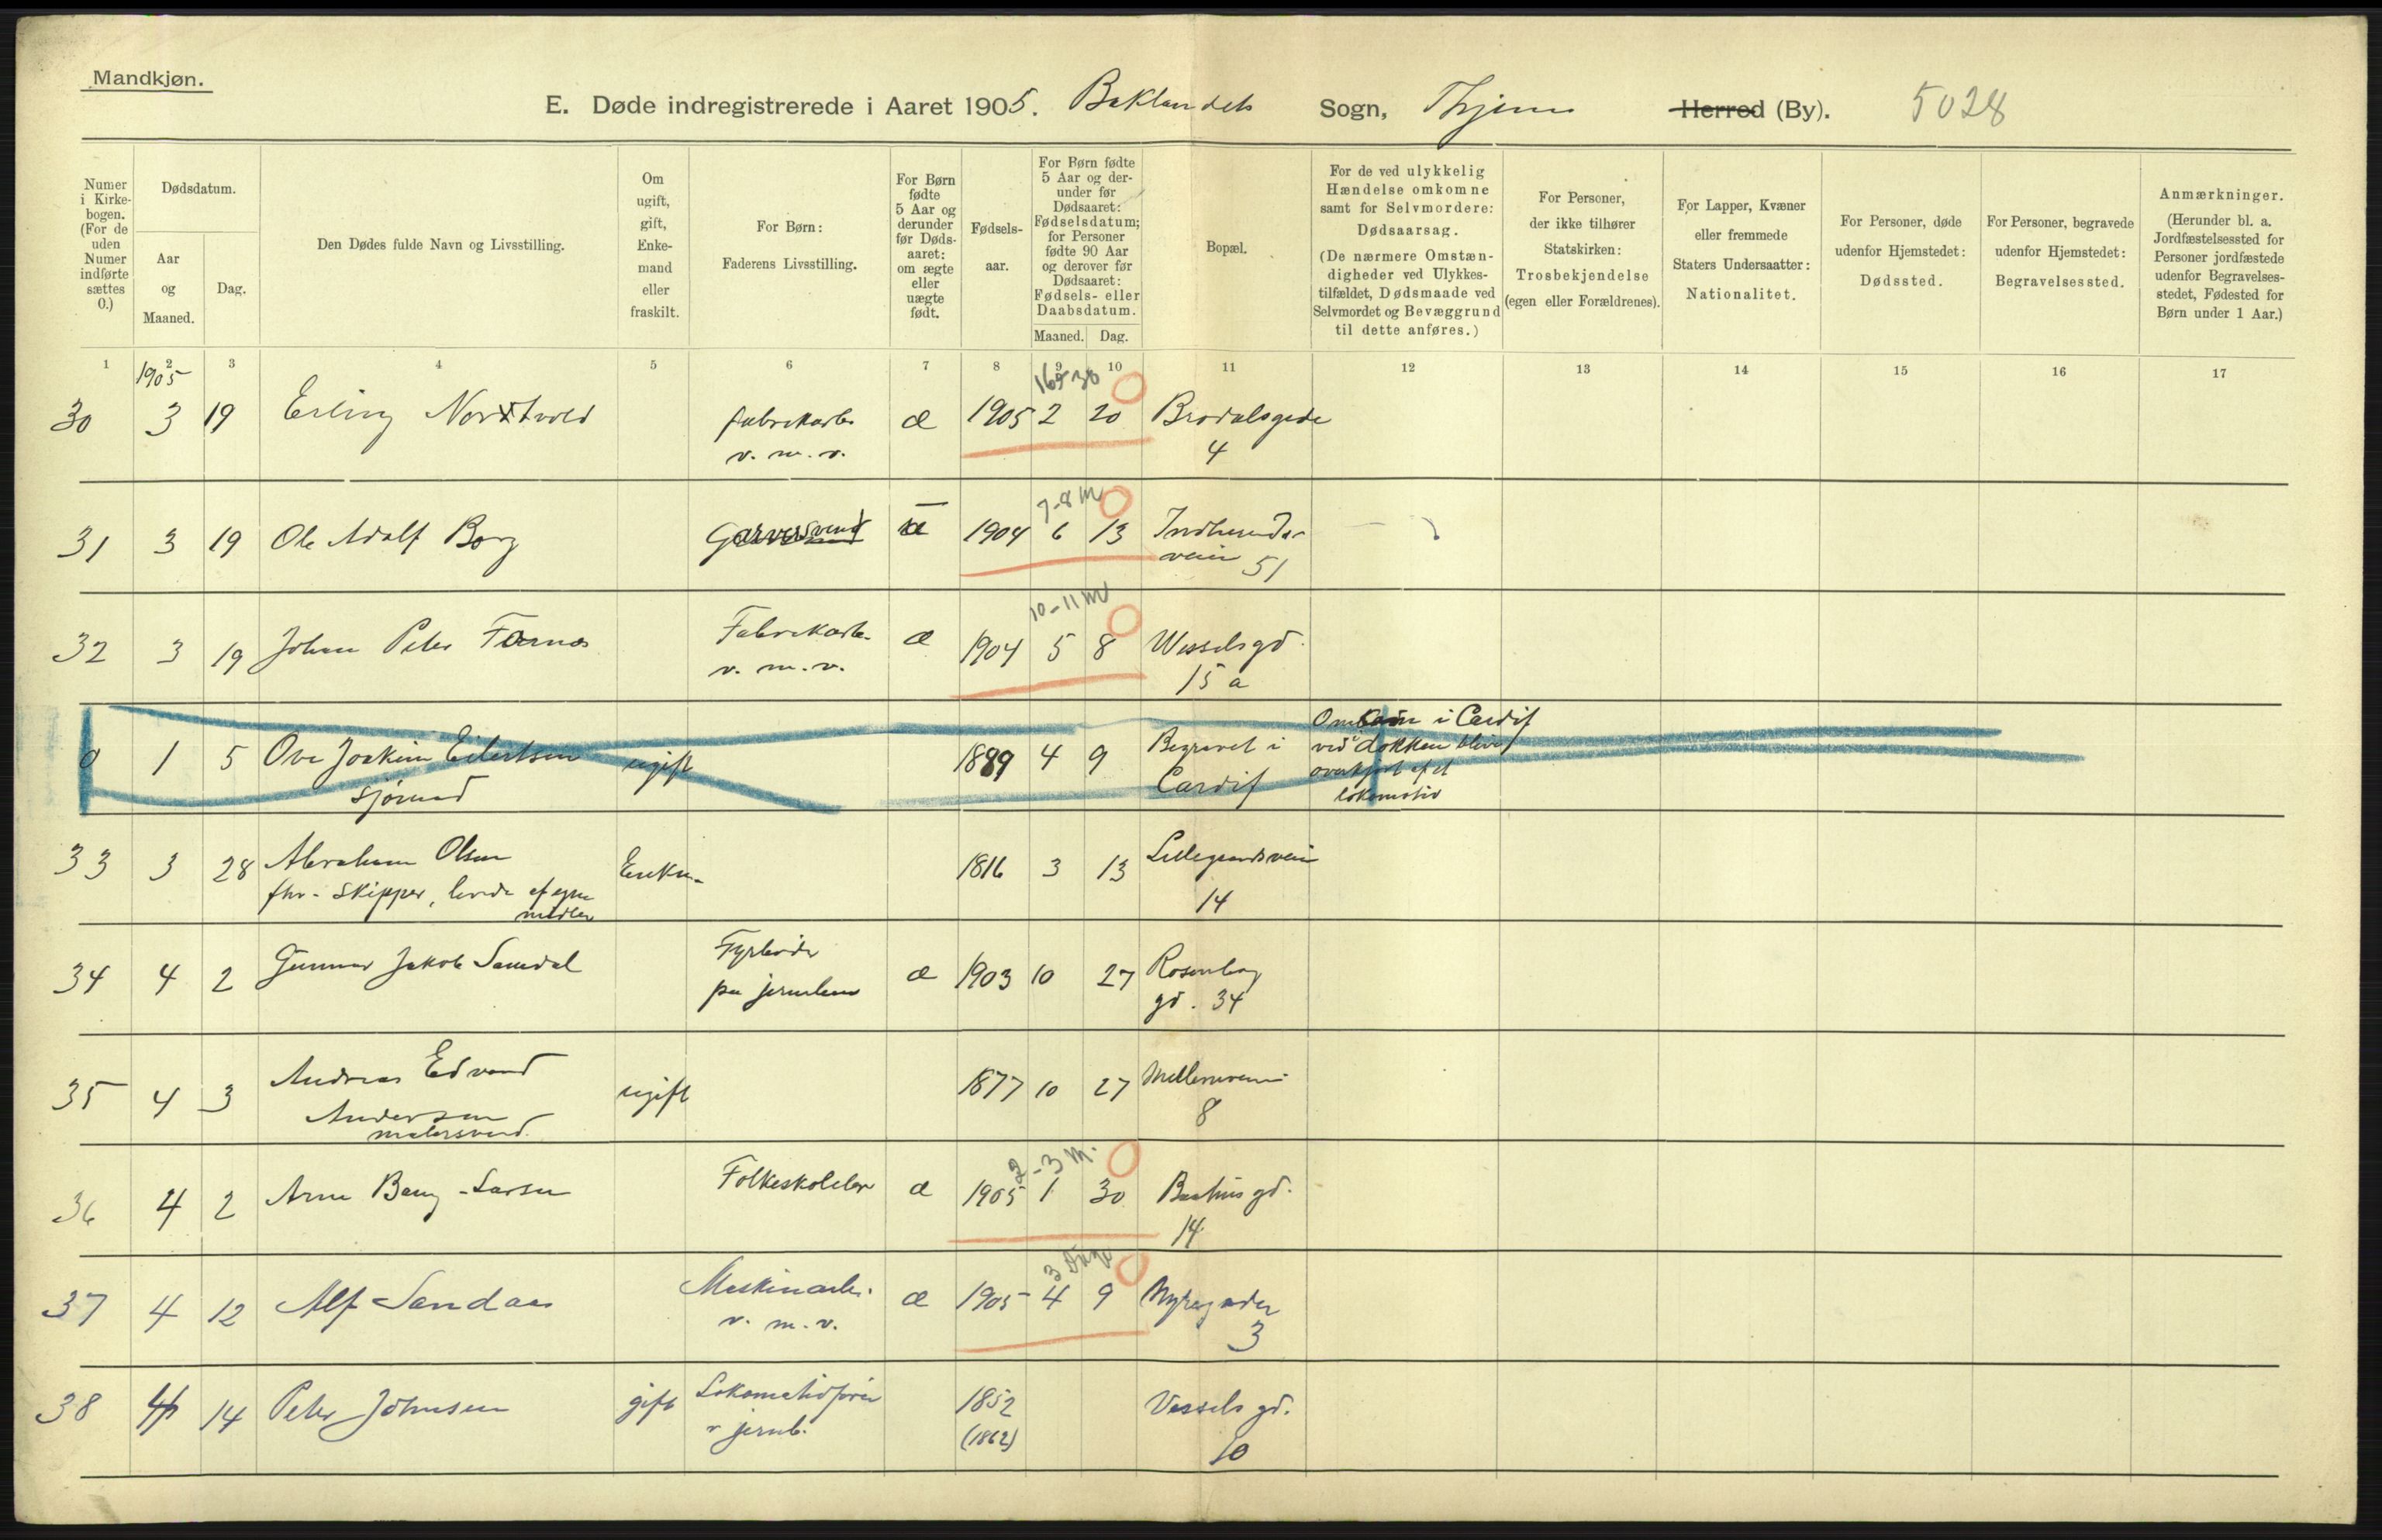 Mandkjøn.
E. Døde indregistrerede i Aaret 1905. Baklandets Sogn, Thjem Herred (By). 5028
Numer i Kirkebogen. (For de uden Numer indførte sættes 0.)
Dødsdatum.
Aar og Maaned.
Dag.
Den Dødes fulde Navn og Livsstilling.
Om ugift, gift, Enkemand eller fraskilt.
For Børn: Faderens Livsstilling.
For Børn fødte 5 Aar og derunder før Dødsaaret: om ægte eller uægte født.
Fødselsaar.
For Børn fødte 5 Aar og derunder før Dødsaaret: Fødselsdatum; for Personer fødte 90 Aar og derover før Dødsaaret: Fødsels- eller Daabsdatum.
Maaned. Dag.
Bopæl.
For de ved ulykkelig Hændelse omkomne samt for Selvmordere: Dødsaarsag.
(De nærmere Omstændigheder ved Ulykkestilfældet, Dødsmaade ved Selvmordet og Bevæggrund til dette anføres.)
For Personer, der ikke tilhører Statskirken: Trosbekjendelse (egen eller Forældrenes).
For Lapper, Kvæner eller fremmede Staters Undersaatter: Nationalitet.
For Personer, døde udenfor Hjemstedet: Dødssted.
For Personer, begravede udenfor Hjemstedet: Begravelsessted.
Anmærkninger.
(Herunder bl. a. Jordfæstelsessted for Personer jordfæstede udenfor Begravelsesstedet, Fødested for Børn under 1 Aar.)
1 2 3 4 5 6 7 8 9 10 11 12 13 14 15 16 17
1905
30 3 19 Erling fabrikarb. æ 1905 2 20 Brodalsgade
v. m. v. 4
7-8 M
31 3 19 Ole Adolf Borg Garversvend æ 1904 6 13 Indherreds-
veien 51
10-11 M
32 3 19 Johan Peter Fabrikarb. æ 1904 5 8 Wesselsgd.
v. m. v. 15 a
0 1 5 Ove Joakim Eilertsen ugift 1889 4 9 Begravet i Omkom i Cardif
sjømand Cardif ved dokken blive
overkjørt af et
lokomotiv
33 3 28 Abraham Olsen Enkm. 1816 3 13 Lillegaardsvein
fhv. skipper, levede af egne 14
midler
34 4 2 Gunnar Jakob Samdal Fyrbøder æ 1903 10 27 Rosenborg
paa jernbane gd. 34
35 4 3 Andreas Edvard ugift 1877 10 27 Mellemveien
Andersen 8
malersvend.
2-3 M.
36 4 2 Arne Bang-Larsen Folkeskolelær æ 1905 1 30 Bakhusgd.
14
3 Dage
37 4 12 Alf Sandaas Maskinarb. æ 1905 4 9 Nyhregaden
v. m. v. 3
38 4 14 Peter Johnsen gift Lokomotivfører 1852 Vessels gd.
v jernb. (1862) 10